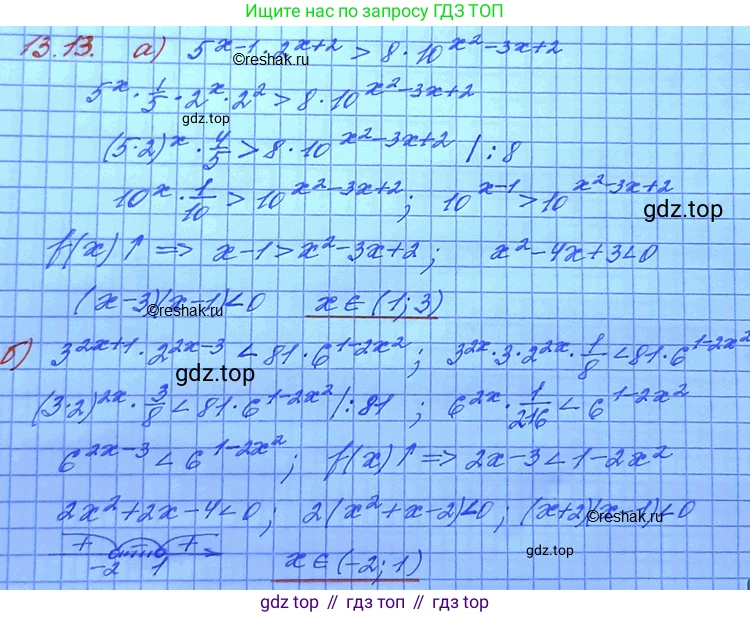 Ищите нас по запросу ГДЗ ТОП
13.13. а) 5^{x-1} · 2^{x+2} > 8 · 10^{x²-3x+2}
©reshak.ru
5^x · 1/5 · 2^x · 2² > 8 · 10^{x²-3x+2}
gdz.top
(5·2)^x · 4/5 > 8 · 10^{x²-3x+2} | : 8
10^x · 1/10 > 10^{x²-3x+2}; 10^{x-1} > 10^{x²-3x+2}
gdz.top
f(x)↑ => x-1 > x²-3x+2; x²-4x+3<0
(x-3)(x-1)<0 x∈(1; 3)
©reshak.ru
б) 3^{2x+1} · 2^{2x-3} < 81 · 6^{1-2x²}; 3^{2x} · 3 · 2^{2x} · 1/8 < 81 · 6^{1-2x²}
gdz.top
(3·2)^{2x} · 3/8 < 81 · 6^{1-2x²} | : 81; 6^{2x} · 1/216 < 6^{1-2x²}
6^{2x-3} < 6^{1-2x²}; f(x)↑ => 2x-3 < 1-2x²
2x²+2x-4<0; 2(x²+x-2)<0; (x+2)(x-1)<0
©reshak.ru
+ +
gdz.top
-2 1 x∈(-2; 1)
gdz топ // гдз топ // gdz.top